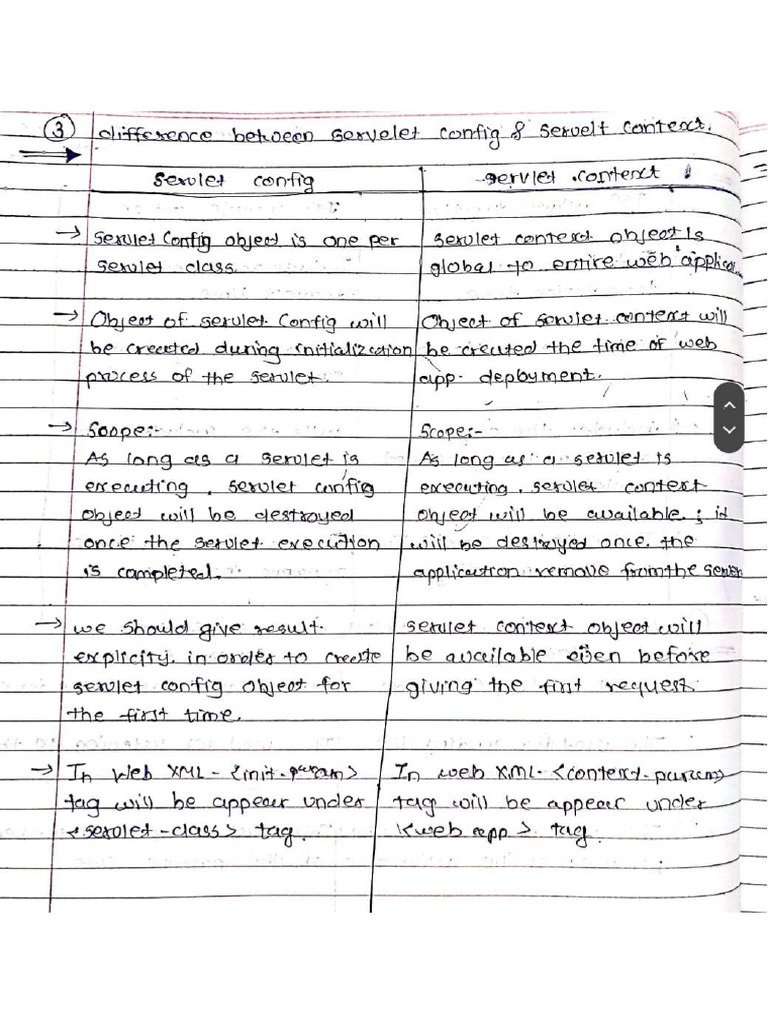 ③ difference between servelet config & servelt context.
servlet config
servlet context
→ servlet Config object is one per
servlet class.
servlet context object is
global to entire web applica
→ Object of servlet Config will
be created during initialization
process of the servlet.
Object of servlet context will
be created the time of web
app. deployment.
→ Scope:-
As long as a servlet is
executing, servlet config
object will be destroyed
once the servlet execution
is completed.
Scope:-
As long as a servlet is
executing, servlet context
object will be available; it
will be destroyed once the
application remove from the server
→ we should give result
explicity, in order to create
servlet config object for
the first time.
servlet context object will
be available even before
giving the first request
→ In Web XML - <init-param>
tag will be appear under
<servlet-class> tag.
In web XML - <context-param>
tag will be appear under
<web app> tag.